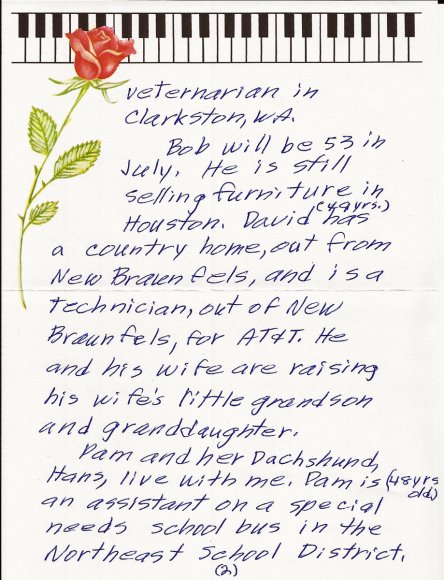 veternarian in
Clarkston, WA.
Bob will be 53 in
July. He is still
selling furniture in
(49yrs.)
Houston. David has
a country home, out from
New Braunfels, and is a
technician, out of New
Braunfels, for AT&T. He
and his wife are raising
his wife's little grandson
and granddaughter.
Pam and her Dachshund,
Hans, live with me. Pam is (48yrs old)
an assistant on a special
needs school bus in the
Northeast School District.
(2)